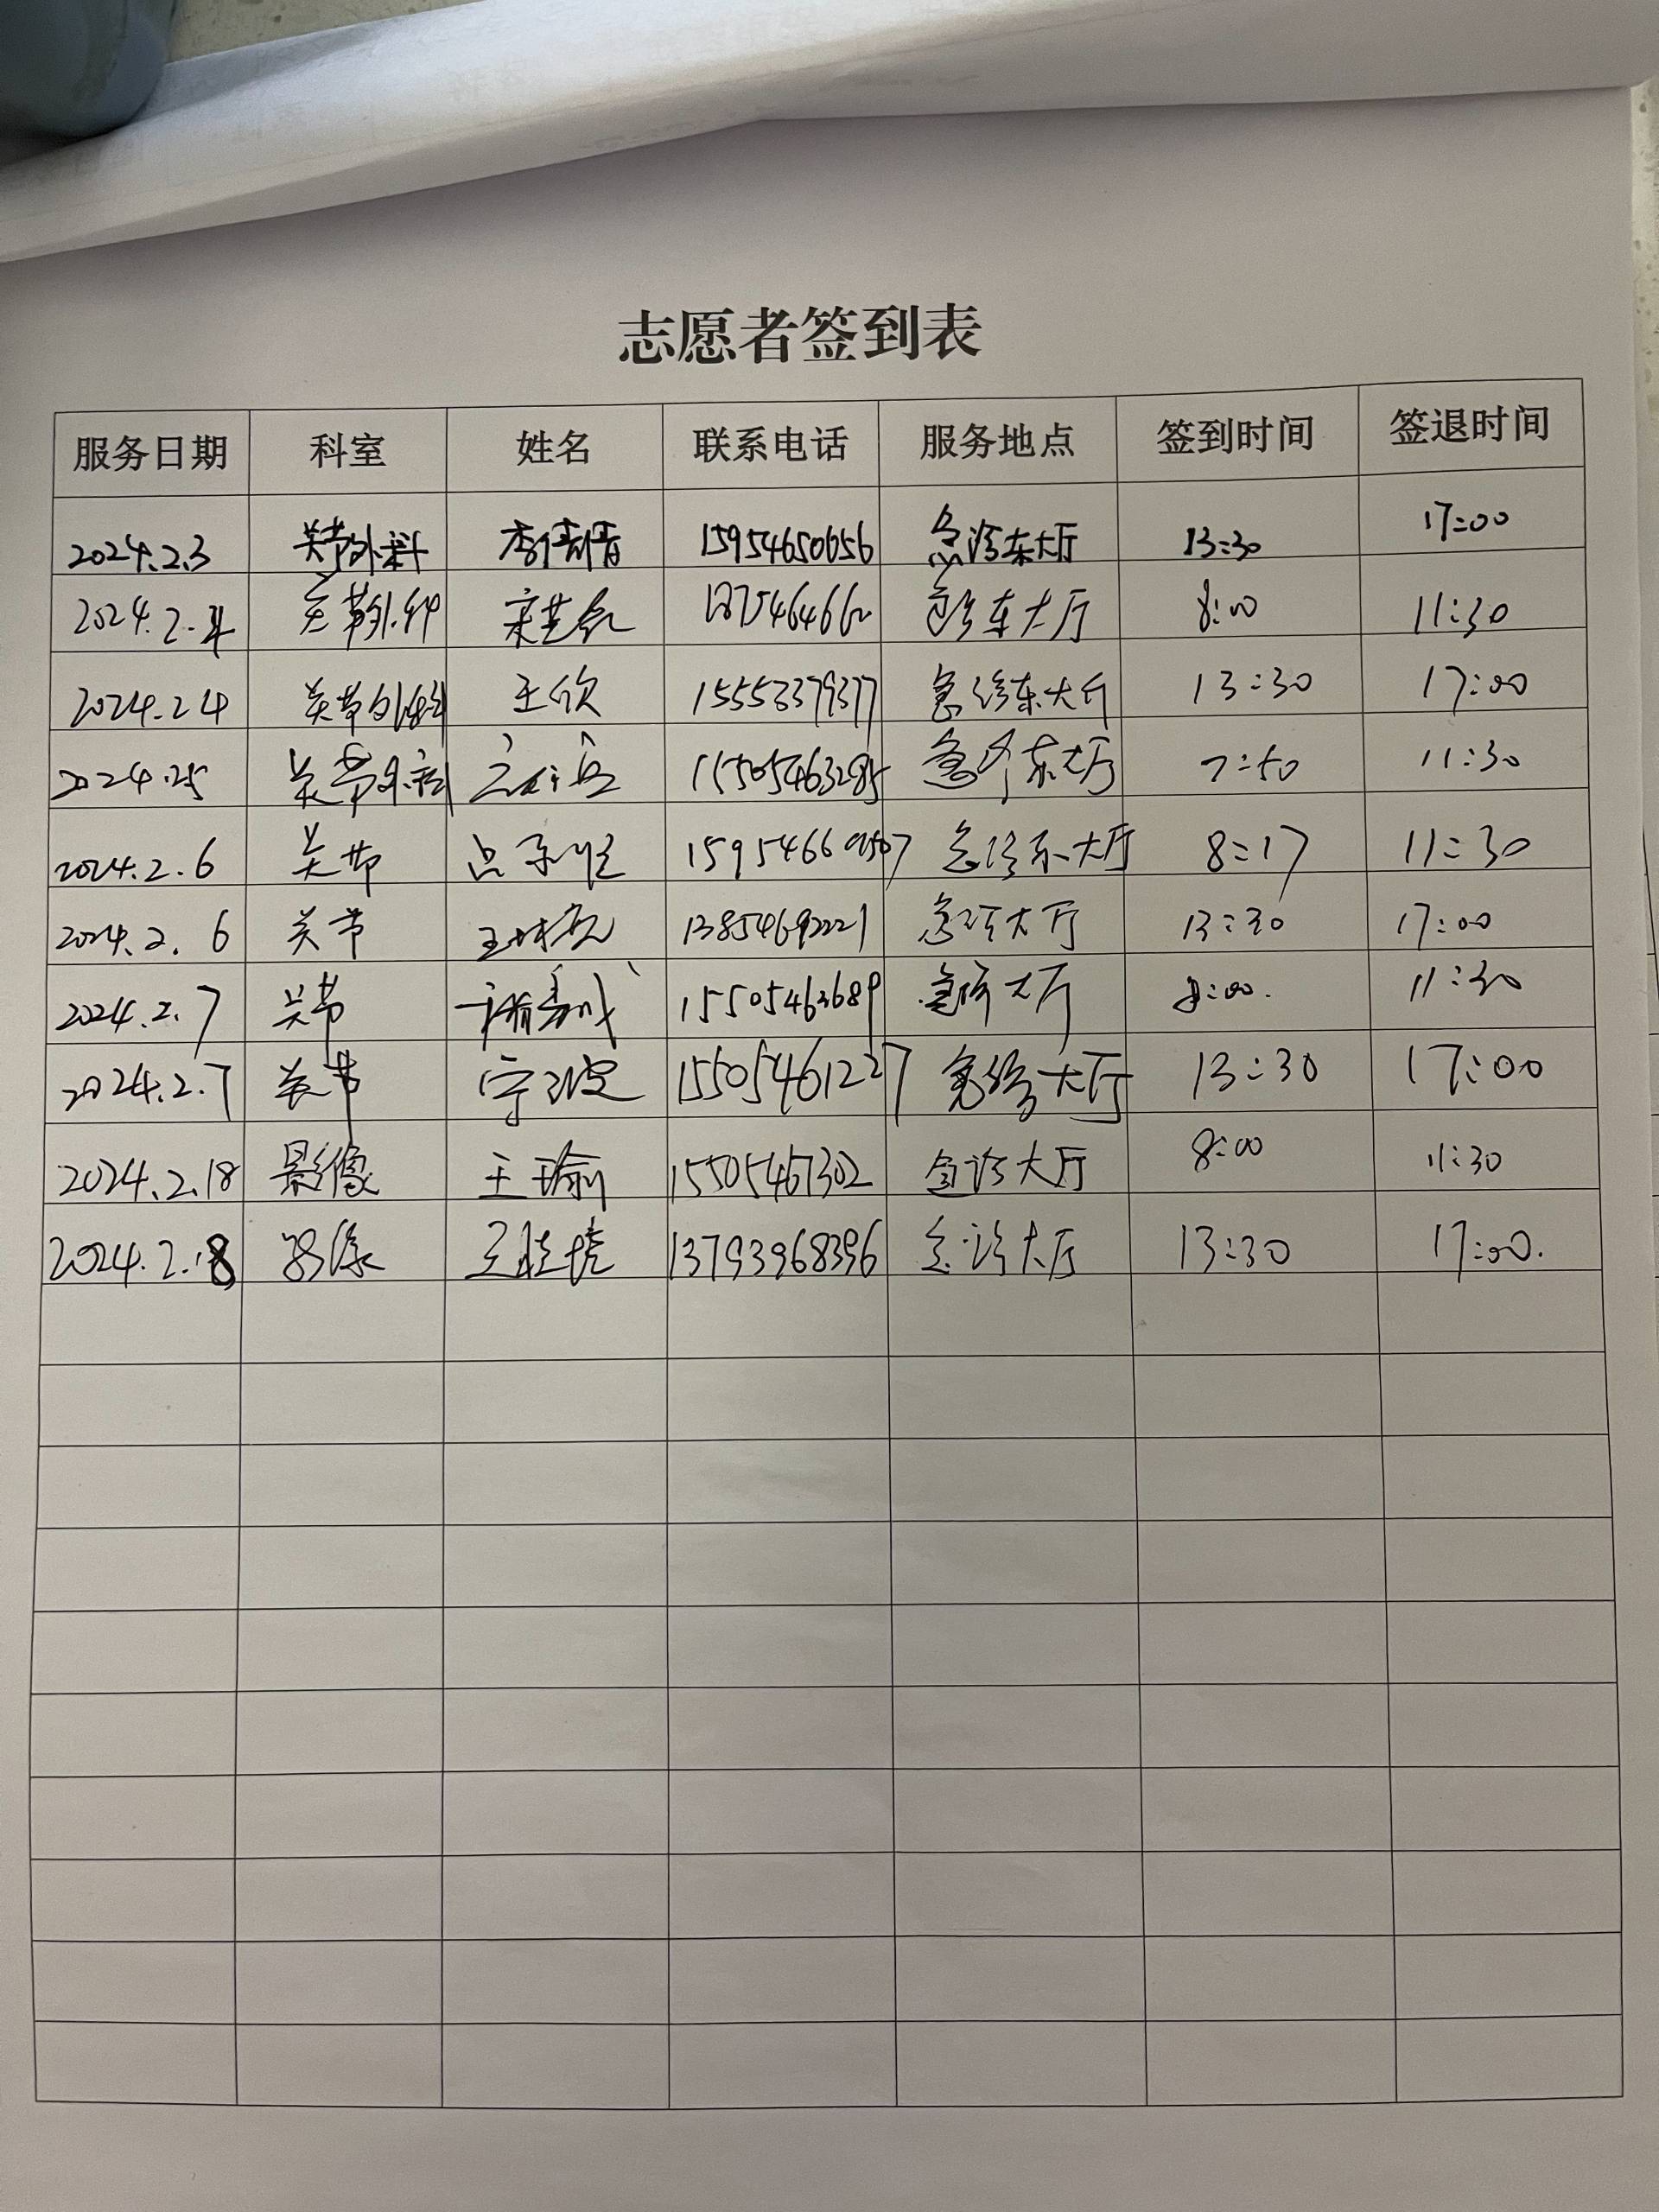 志愿者签到表
服务日期 科室 姓名 联系电话 服务地点 签到时间 签退时间
2024.2.3 关节外科 李倩倩 15954650656 急诊东大厅 13:30 17:00
2024.2.4 关节外科 急诊东大厅 8:00 11:30
2024.2.4 关节外科 王欣 急诊东大厅 13:30 17:00
2024.2.5 关节外科 15505463285 急诊东大厅 7:50 11:30
2024.2.6 关节 急诊东大厅 8:17 11:30
2024.2.6 关节 13854692221 急诊大厅 13:30 17:00
2024.2.7 关节 15505463689 急诊大厅 8:00. 11:30
2024.2.7 关节 宁波 15505461227 急诊大厅 13:30 17:00
2024.2.18 影像 王瑜 15505467302 急诊大厅 8:00 11:30
2024.2.18 影像 13793968396 急诊大厅 13:30 17:00.